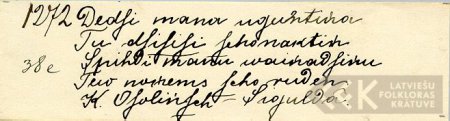 1272 Dedsi mana uguntina
Tu dsisisi scho naktin
38e Spihdi manu wainadsinu
Tew noņems scho ruden
K. Osolinsch = Sigulda.
LATVIEŠU
FOLKLORAS
KRĀTUVE